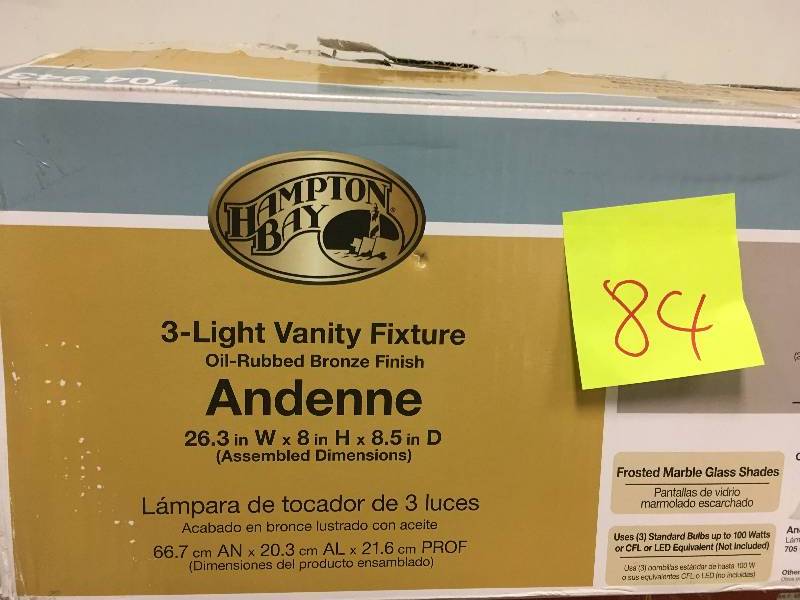 704 943
HAMPTON
BAY
3-Light Vanity Fixture
Oil-Rubbed Bronze Finish
Andenne
26.3 in W x 8 in H x 8.5 in D
(Assembled Dimensions)
Lámpara de tocador de 3 luces
Acabado en bronce lustrado con aceite
66.7 cm AN x 20.3 cm AL x 21.6 cm PROF
(Dimensiones del producto ensamblado)
84
Frosted Marble Glass Shades
Pantallas de vidrio
marmolado escarchado
Uses (3) Standard Bulbs up to 100 Watts
or CFL or LED Equivalent (Not Included)
Usa (3) bombillas estándar de hasta 100 W
o sus equivalentes CFL o LED (no incluidas)